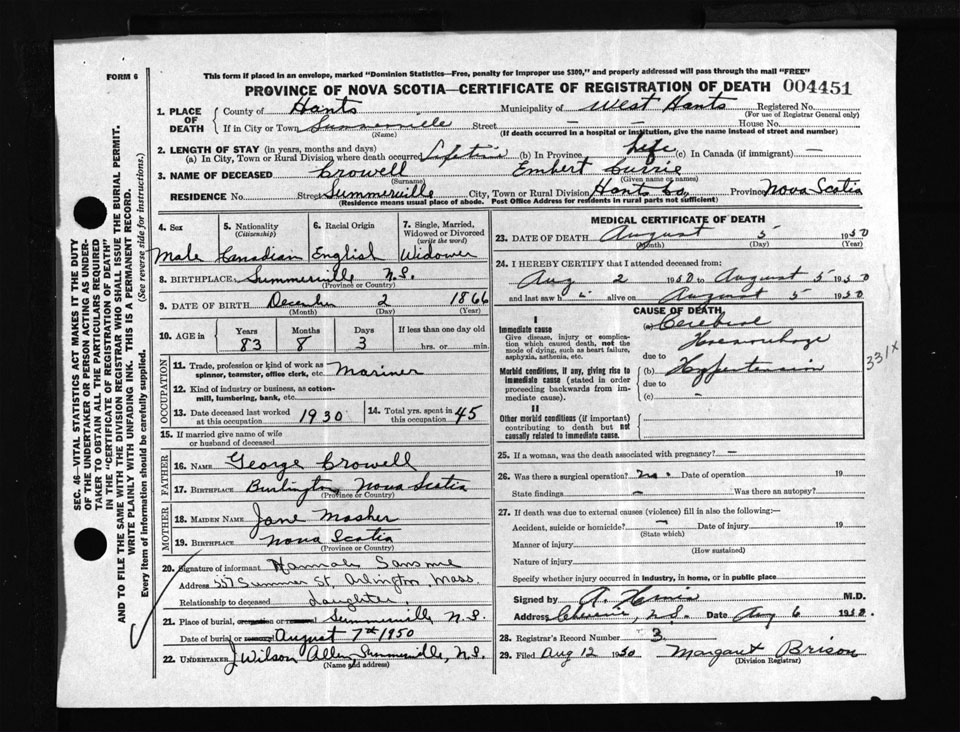 FORM 6
This form if placed in an envelope, marked "Dominion Statistics—Free, penalty for improper use $300," and properly addressed will pass through the mail "FREE"
PROVINCE OF NOVA SCOTIA—CERTIFICATE OF REGISTRATION OF DEATH 004451
1. PLACE OF DEATH County of Hants Municipality of West Hants Registered No.
(For use of Registrar General only)
If in City or Town Summerville Street — — House No.
(Name) (If death occurred in a hospital or institution, give the name instead of street and number)
2. LENGTH OF STAY (in years, months and days)
(a) In City, Town or Rural Division where death occurred Lifetime (b) In Province Life (c) In Canada (if immigrant) —
3. NAME OF DECEASED Crowell Embert Currie
(Surname) (Given name or names)
RESIDENCE No. Street Summerville City, Town or Rural Division Hants Co. Province Nova Scotia
(Residence means usual place of abode. Post Office Address for residents in rural parts not sufficient)
4. Sex 5. Nationality (Citizenship) 6. Racial Origin 7. Single, Married, Widowed or Divorced (write the word)
Male Canadian English Widower
8. BIRTHPLACE Summerville N.S.
(Province or Country)
9. DATE OF BIRTH December 2 1866
(Month) (Day) (Year)
10. AGE in Years Months Days If less than one day old
83 8 3 hrs. or min.
OCCUPATION
11. Trade, profession or kind of work as spinner, teamster, office clerk, etc. Mariner
12. Kind of industry or business, as cotton-mill, lumbering, bank, etc.
13. Date deceased last worked at this occupation 1930 14. Total yrs. spent in this occupation 45
15. If married give name of wife or husband of deceased
FATHER
16. NAME George Crowell
17. BIRTHPLACE Burlington Nova Scotia
(Province or Country)
MOTHER
18. MAIDEN NAME Jane Mosher
19. BIRTHPLACE Nova Scotia
(Province or Country)
20. Signature of informant Hannah
Address Summer St. Arlington, Mass.
Relationship to deceased daughter
21. Place of burial, cremation or removal Summerville N.S.
Date of burial or removal August 7th 1950
22. UNDERTAKER J Wilson Allen Summerville, N.S.
(Name and address)
MEDICAL CERTIFICATE OF DEATH
23. DATE OF DEATH August 5 1950
(Month) (Day) (Year)
24. I HEREBY CERTIFY that I attended deceased from:
Aug 2 1950 to August 5 1950
and last saw h i alive on August 5 1950
CAUSE OF DEATH
I
Immediate cause
Give disease, injury or complication which caused death, not the mode of dying, such as heart failure, asphyxia, asthenia, etc.
(a) Cerebral
Haemorrhage
due to
Morbid conditions, if any, giving rise to immediate cause (stated in order proceeding backwards from immediate cause).
(b) Hypertension
due to
(c) —
331x
II
Other morbid conditions (if important) contributing to death but not causally related to immediate cause.
25. If a woman, was the death associated with pregnancy? —
26. Was there a surgical operation? no. Date of operation 19
State findings — Was there an autopsy?
27. If death was due to external causes (violence) fill in also the following:—
Accident, suicide or homicide? — Date of injury 19
(State which)
Manner of injury
(How sustained)
Nature of injury
Specify whether injury occurred in industry, in home, or in public place
Signed by A. M.D.
Address Cheverie, N.S. Date Aug 6 1950.
28. Registrar's Record Number 3.
29. Filed Aug 12 1950 Margaret Brison
(Division Registrar)
SEC. 46—VITAL STATISTICS ACT MAKES IT THE DUTY
OF THE UNDERTAKER OR PERSON ACTING AS UNDERTAKER TO OBTAIN ALL THE PARTICULARS REQUIRED
IN THE "CERTIFICATE OF REGISTRATION OF DEATH"
AND TO FILE THE SAME WITH THE DIVISION REGISTRAR WHO SHALL ISSUE THE BURIAL PERMIT.
WRITE PLAINLY WITH UNFADING INK. THIS IS A PERMANENT RECORD.
Every item of information should be carefully supplied. (See reverse side for instructions.)